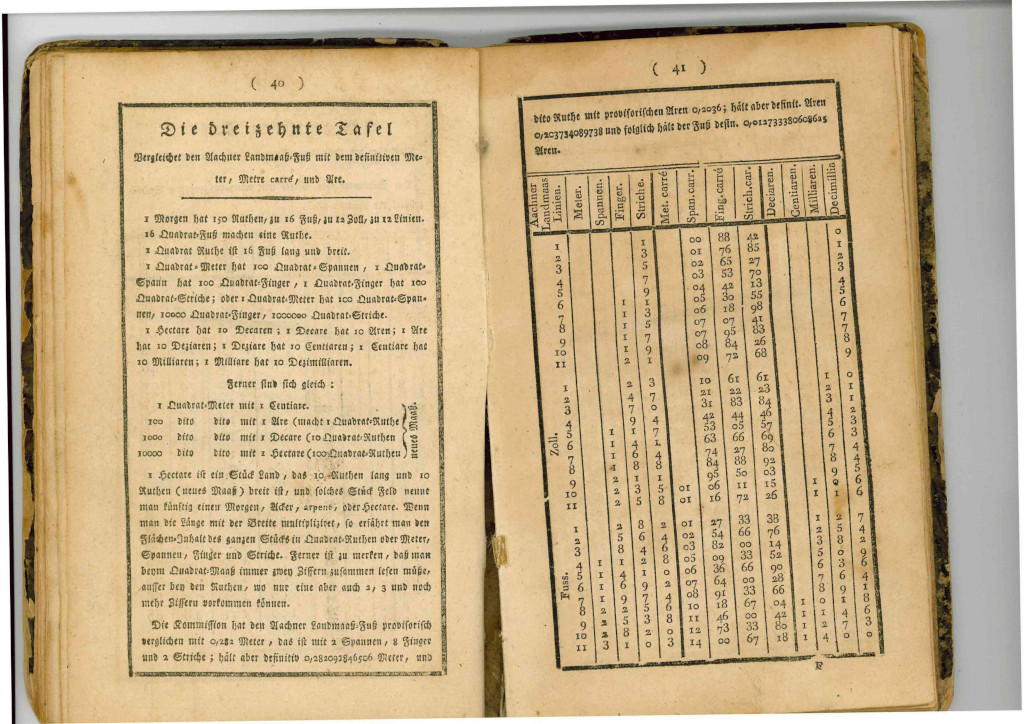 ( 40 )
Die dreizehnte Tafel
Vergleichet den Aachner Landmaaß-Fuß mit dem definitiven Me-
ter, Metre carré, und Are.
1 Morgen hat 150 Ruthen, zu 16 Fuß, zu 12 Zoll, zu 12 Linien.
16 Quadrat-Fuß machen eine Ruthe.
1 Quadrat Ruthe ist 16 Fuß lang und breit.
1 Quadrat-Meter hat 100 Quadrat-Spannen, 1 Quadrat-
Spann hat 100 Quadrat-Finger, 1 Quadrat-Finger hat 100
Quadrat-Striche; oder 1 Quadrat-Meter hat 100 Quadrat-Span-
nen, 10000 Quadrat-Finger, 1000000 Quadrat-Striche.
1 Hectare hat 10 Decaren; 1 Decare hat 10 Aren; 1 Are
hat 10 Deziaren; 1 Deziare hat 10 Centiaren; 1 Centiare hat
10 Milliaren; 1 Milliare hat 10 Dezimilliaren.
Ferner sind sich gleich:
1 Quadrat-Meter mit 1 Centiare.
100 dito dito mit 1 Are (macht 1 Quadrat-Ruthe
1000 dito dito mit 1 Decare (10 Quadrat-Ruthen
10000 dito dito mit 1 Hectare (100 Quadrat-Ruthen
neues Maaß.
1 Hectare ist ein Stück Land, das 10 Ruthen lang und 10
Ruthen (neues Maaß) breit ist, und solches Stück Feld nennt
man künftig einen Morgen, Acker, arpent, oder Hectare. Wenn
man die Länge mit der Breite multiplizirt, so erfährt man den
Flächen-Inhalt des ganzen Stücks in Quadrat-Ruthen oder Meter,
Spannen, Finger und Striche. Ferner ist zu merken, daß man
beym Quadrat-Maaß immer zwey Ziffern zusammen lesen müße,
ausser bey den Ruthen, wo nur eine aber auch 2, 3 und noch
mehr Ziffern vorkommen können.
Die Kommission hat den Aachner Landmaaß-Fuß provisorisch
verglichen mit 0,282 Meter, das ist mit 2 Spannen, 8 Finger
und 2 Striche; hält aber definitiv 0,282092846506 Meter, und
( 41 )
dito Ruthe mit provisorischen Aren 0,2036; hält aber definit. Aren
0,203734089738 und folglich hält der Fuß defin. 0,012733380608625
Aren.
Aachner Landmaas Linien. Meter. Spannen. Finger. Striche. Met. carré Span. carr. Fing. carré Strich. car. Deciaren. Centiaren. Milliaren. Decimillia
1 1 00 88 42 0
2 3 01 76 85 1
3 5 02 65 27 2
4 7 03 53 70 3
5 9 04 42 13 4
6 1 1 05 30 55 5
7 1 3 06 18 98 6
8 1 5 07 07 41 7
9 1 7 07 95 83 7
10 1 9 08 84 26 8
11 2 1 09 72 68 9
Zoll.
1 2 3 10 61 61 1 0
2 4 7 21 22 23 2 1
3 7 0 31 83 84 3 1
4 9 4 42 44 46 4 2
5 1 1 7 53 05 57 5 3
6 1 4 1 63 66 69 6 3
7 1 6 4 74 27 80 7 4
8 1 8 8 84 88 92 8 4
9 2 1 1 95 50 03 9 5
10 2 3 5 01 06 11 15 1 0 6
11 2 5 8 01 16 72 26 1 1 6
Fuss.
1 2 8 2 01 27 33 38 1 2 7
2 5 6 4 02 54 66 76 2 5 4
3 8 4 6 03 82 00 14 3 8 2
4 1 1 2 8 05 09 33 52 5 0 9
5 1 4 1 0 06 36 66 90 6 3 6
6 1 6 9 2 07 64 00 28 7 6 4
7 1 9 7 4 08 91 33 66 8 9 1
8 2 2 5 6 10 18 67 04 1 0 1 8
9 2 5 3 8 11 46 00 42 1 1 4 6
10 2 8 2 0 12 73 33 80 1 2 7 3
11 3 1 0 3 14 00 67 18 1 4 0 0
F